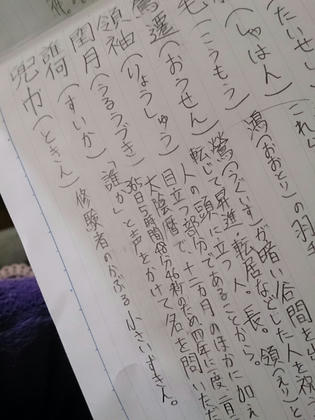 これ
(たいせい
(しゃはん)
毛(こうもう) 鴻(おおとり)の羽
鶯遷(おうせん) 鶯(うぐいす)が暗い谷間を出
転じて昇進・転居などした人を祝
領袖(りょうしゅう) 人の頭に立つ人。長。領(えり)と
目立つ部分であることから。
閏月(うるうづき) 太陰暦で、十二か月のほかに加え
365日5時間48分46秒のため四年に一度、二月
誰何(すいか) 「誰か」と声をかけて名を問いただ
兜巾(ときん) 修験者のかぶる小さいずきん。